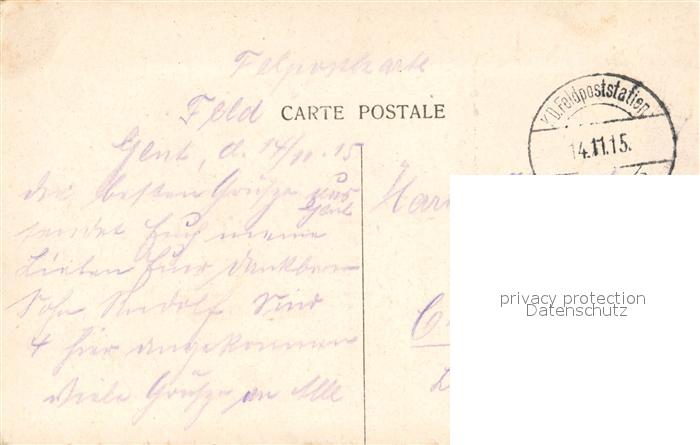 Felpostkarte
Feld CARTE POSTALE
K.D. Feldpoststation
14.11.15.
Gent, d. 14/11.15
besten Grüße aus
Gent
sendet Euch meine
Lieben Euer dankbarer
Sohn Rudolf. Sind
4 hier angekommen
Viele Grüße an Alle
privacy protection
Datenschutz